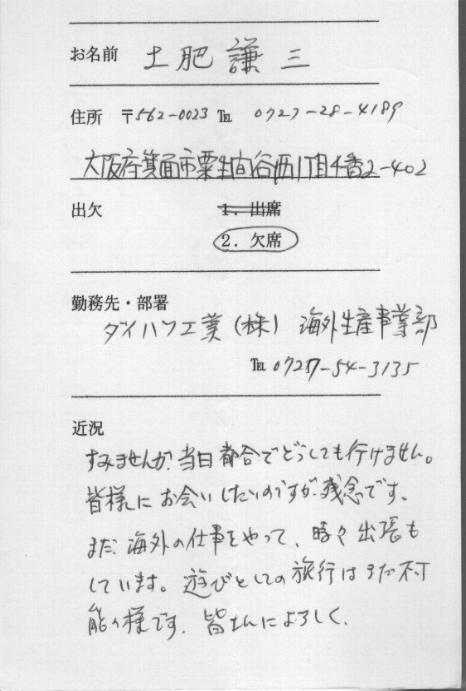 お名前 土肥謙三
住所 〒562-0023 ℡ 0727-28-4189
大阪府箕面市粟生間谷西1丁目4番2-402
出欠 1. 出席
2. 欠席
勤務先・部署
ダイハツ工業(株) 海外生産事業部
℡ 0727-54-3135
近況
すみませんが、当日都合でどうしても行けません。
皆様にお会いしたいのですが残念です。
まだ海外の仕事をやって、時々出張も
しています。遊びとしての旅行はまだ不可
能の様です。皆さんによろしく、